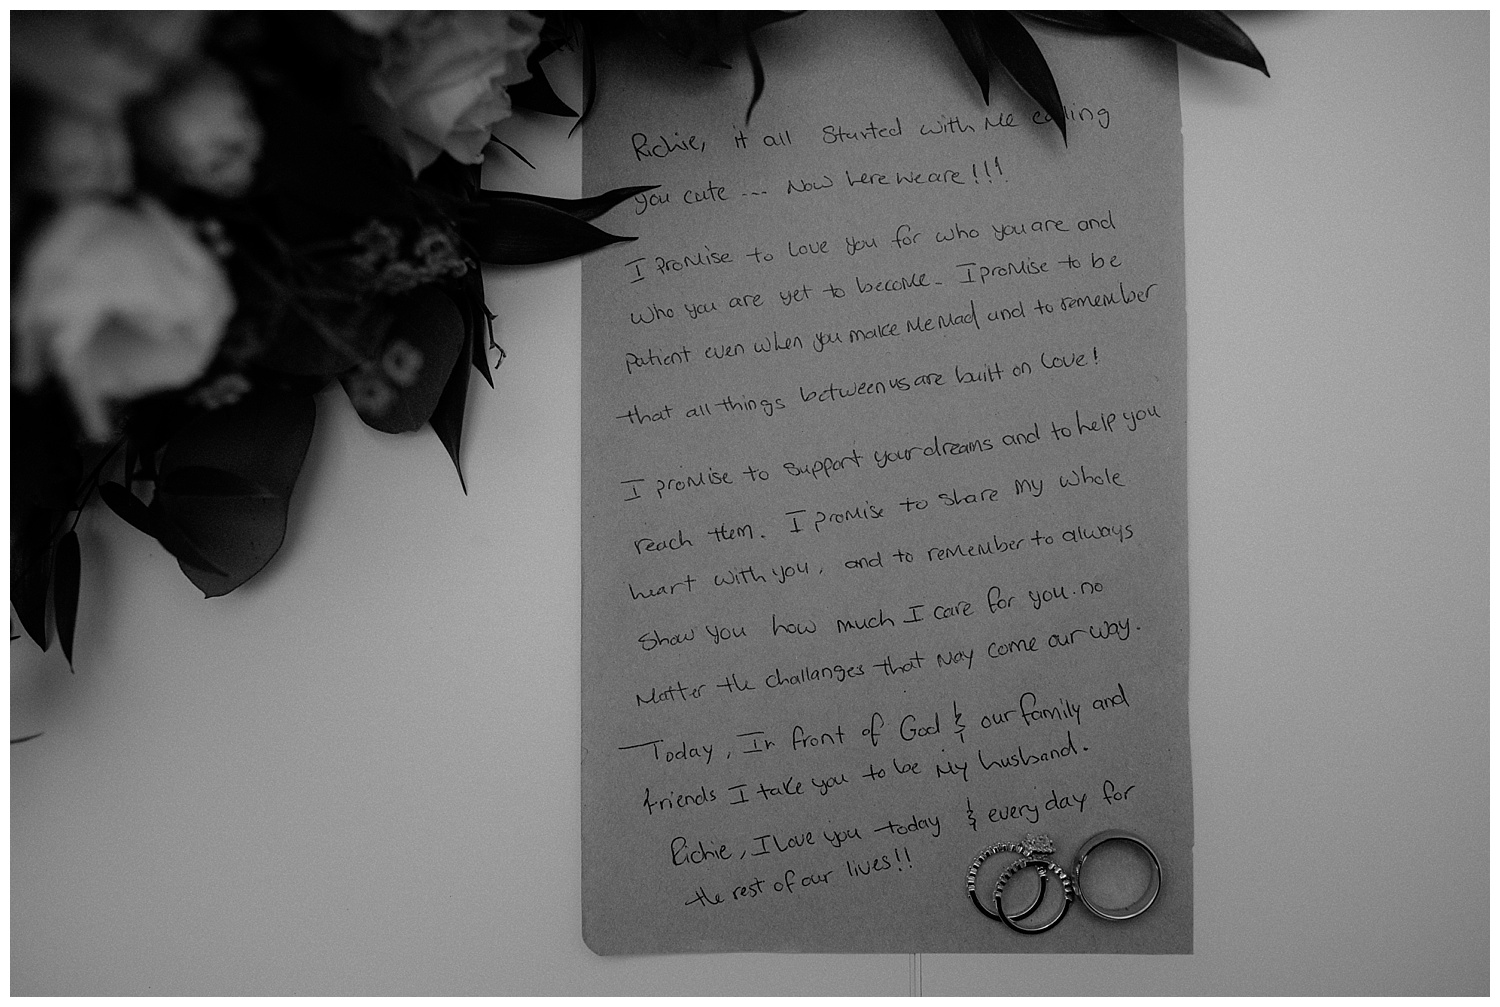 Richie, it all started with Me calling
you cute --- Now here we are!!!
I proMise to love you for who you are and
who you are yet to becoMe. I proMise to be
patient even when you make Me Mad and to remember
that all things between us are built on love!
I proMise to support your dreams and to help you
reach them. I proMise to share my whole
heart with you, and to reMeMber to always
show you how much I care for you. no
Matter the challanges that May come our way.
Today, In front of God & our family and
friends I take you to be My husband.
Richie, I Love you today & everyday for
the rest of our lives!!